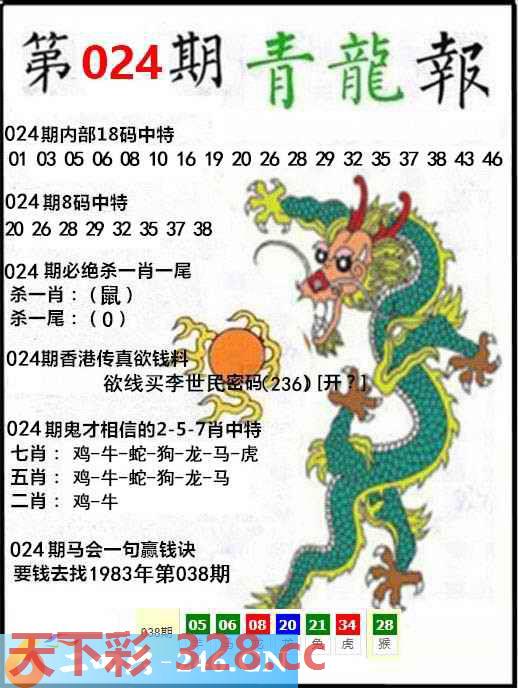 第024期青龍報
024期内部18码中特
01 03 05 06 08 10 16 19 20 26 28 29 32 35 37 38 43 46
024期8码中特
20 26 28 29 32 35 37 38
024 期必绝杀一肖一尾
杀一肖：(鼠)
杀一尾：(0)
024期香港传真欲钱料
欲线买李世民密码(236)[开?]
024期鬼才相信的2-5-7肖中特
七肖：鸡-牛-蛇-狗-龙-马-虎
五肖：鸡-牛-蛇-狗-龙-马
二肖：鸡-牛
024期马会一句赢钱诀
要钱去找1983年第038期
038期 05 06 08 20 21 34 28
龙 兔 虎 猴
天下彩-328.cc